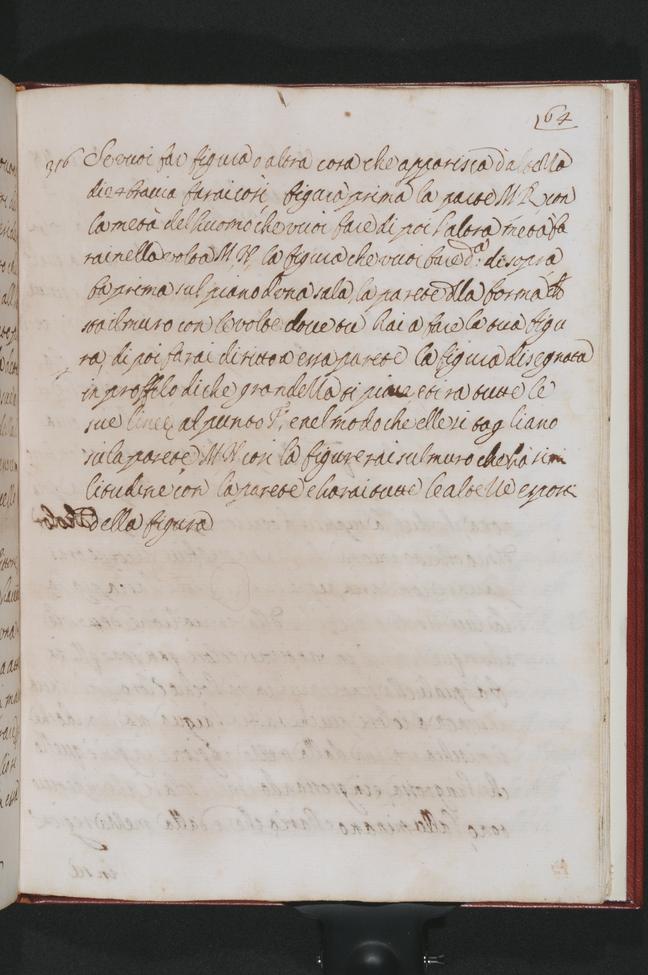 164
316 Se vuoi far figura o altra cosa che apparisca d'altezza
di 24 bracia farai così figura prima la parete M R con
la metà dell'huomo che vuoi fare di poi l'altra metà fa
rai nella volta M N la figura che vuoi fare d.ª di sopra
fa prima sul piano d'ona sala la parete della forma che
sta il muro con le volte dove tu hai a fare la tua figu
ra, di poi farai dirieto a essa parete la figura disegnata
in proffilo di che grandezza ti piace e tira tutte le
sue linee al punto F, e nel modo che elle si tagliano
su la parete M N così la figurerai sul muro che ha sim
litudine con la parete e harai tutte le altezze e sport
della figura